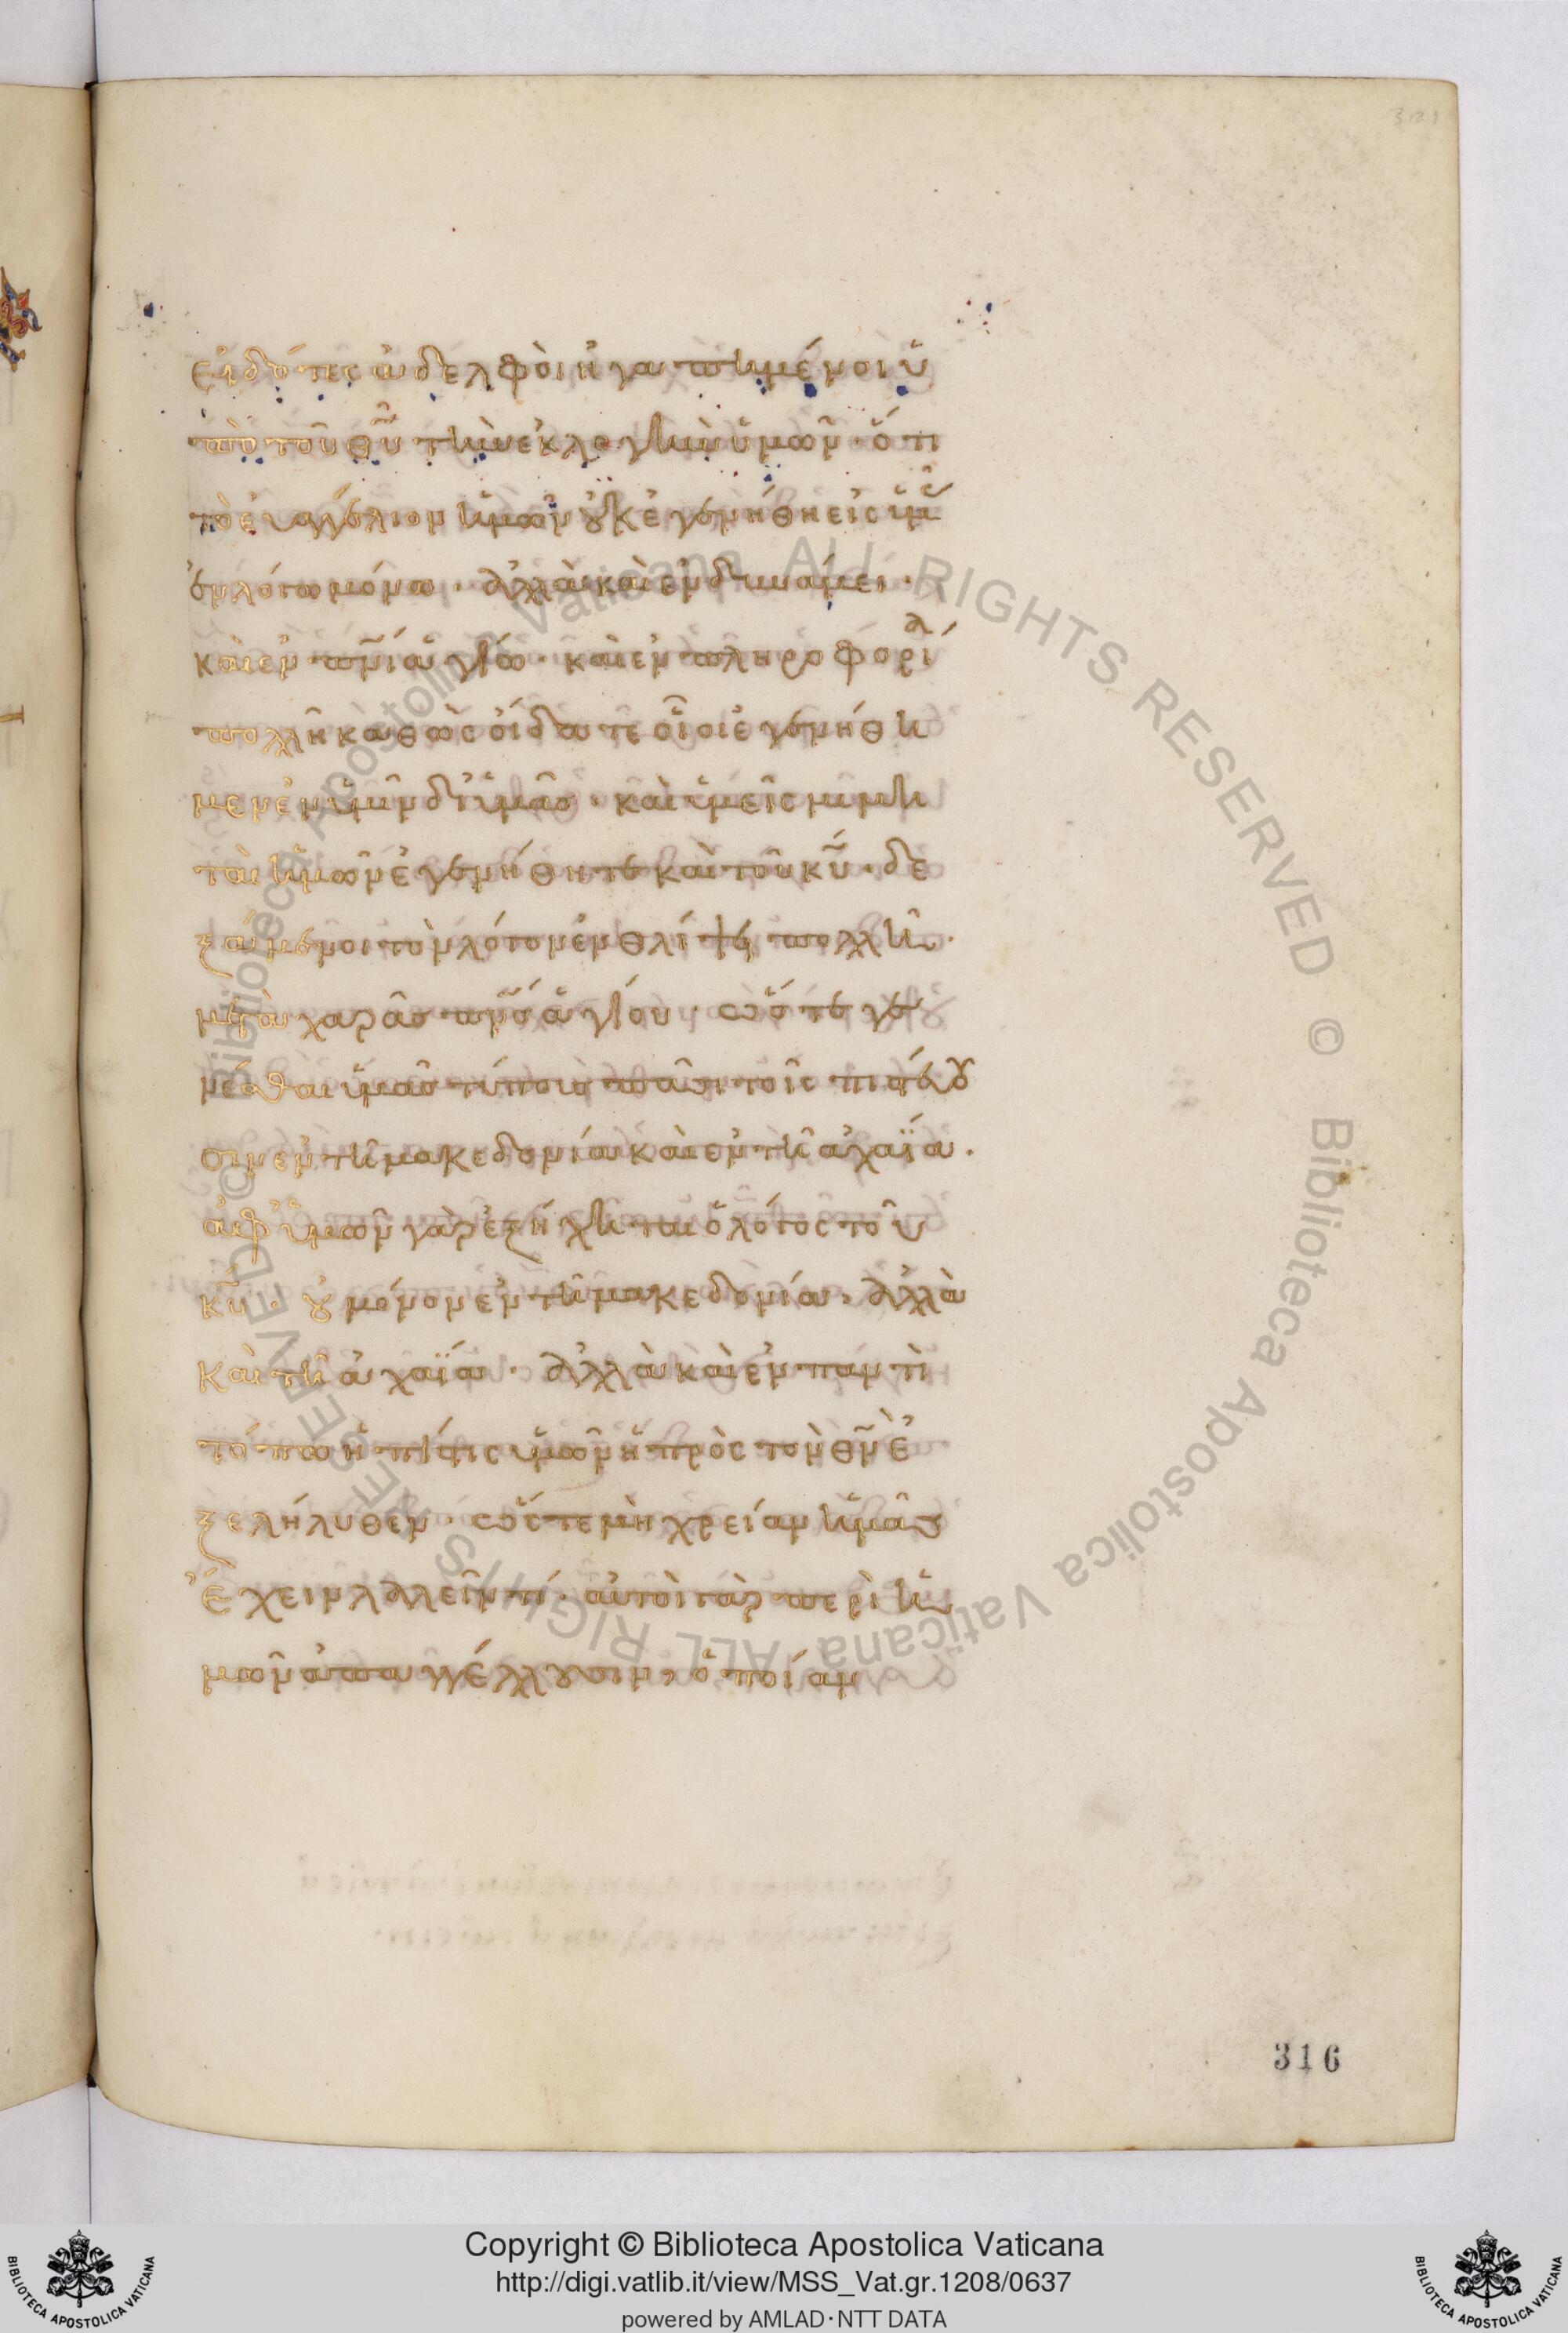 εἰδότες ἀδελφοὶ ἠγαπημένοι ὑ
πὸ τοῦ θῦ τὴν ἐκλογὴν ὑμῶν· ὅτι
τὸ εὐαγγέλιον ἡμῶν οὐκ ἐγενήθη εἰς ὑμᾶς
ἐν λόγω μόνω· ἀλλὰ καὶ ἐν δυνάμει·
καὶ ἐν πνὶ ἁγίω· καὶ ἐν πληροφορία
πολλῆ καθὼς οἴδατε οἷοι ἐγενήθη
μεν ἐν ὑμῖν δι' ὑμᾶς· καὶ ὑμεῖς μιμη
ταὶ ἡμῶν ἐγενήθητε καὶ τοῦ κῦ· δε
ξάμενοι τὸν λόγον ἐν θλίψει πολλῆ·
μετὰ χαρᾶς πνς ἁγίου· ὥστε γε
νέσθαι ὑμᾶς τύποις πᾶσι τοῖς πιστεύου
σιν ἐν τῆ μακεδονία καὶ ἐν τῆ ἀχαΐα·
ἀφ' ὑμῶν γὰρ ἐξήχηται ὁ λόγος τοῦ
κῦ· οὐ μόνον ἐν τῆ μακεδονία, ἀλλὰ
καὶ τῆ ἀχαΐα· ἀλλὰ καὶ ἐν παντὶ
τόπω ἡ πίστις ὑμῶν ἡ πρὸς τὸν θν ἐ
ξελήλυθεν· ὥστε μὴ χρείαν ἡμᾶς
ἔχειν λαλεῖν τί· αὐτοὶ γὰρ περὶ ἡ
μῶν ἀπαγγέλλουσιν, ὁποίαν
316
Copyright © Biblioteca Apostolica Vaticana
http://digi.vatlib.it/view/MSS_Vat.gr.1208/0637
powered by AMLAD·NTT DATA
BIBLIOTECA APOSTOLICA VATICANA
BIBLIOTECA APOSTOLICA VATICANA
Biblioteca Apostolica Vaticana ALL RIGHTS RESERVED © Biblioteca Apostolica Vaticana ALL RIGHTS RESERVED ©